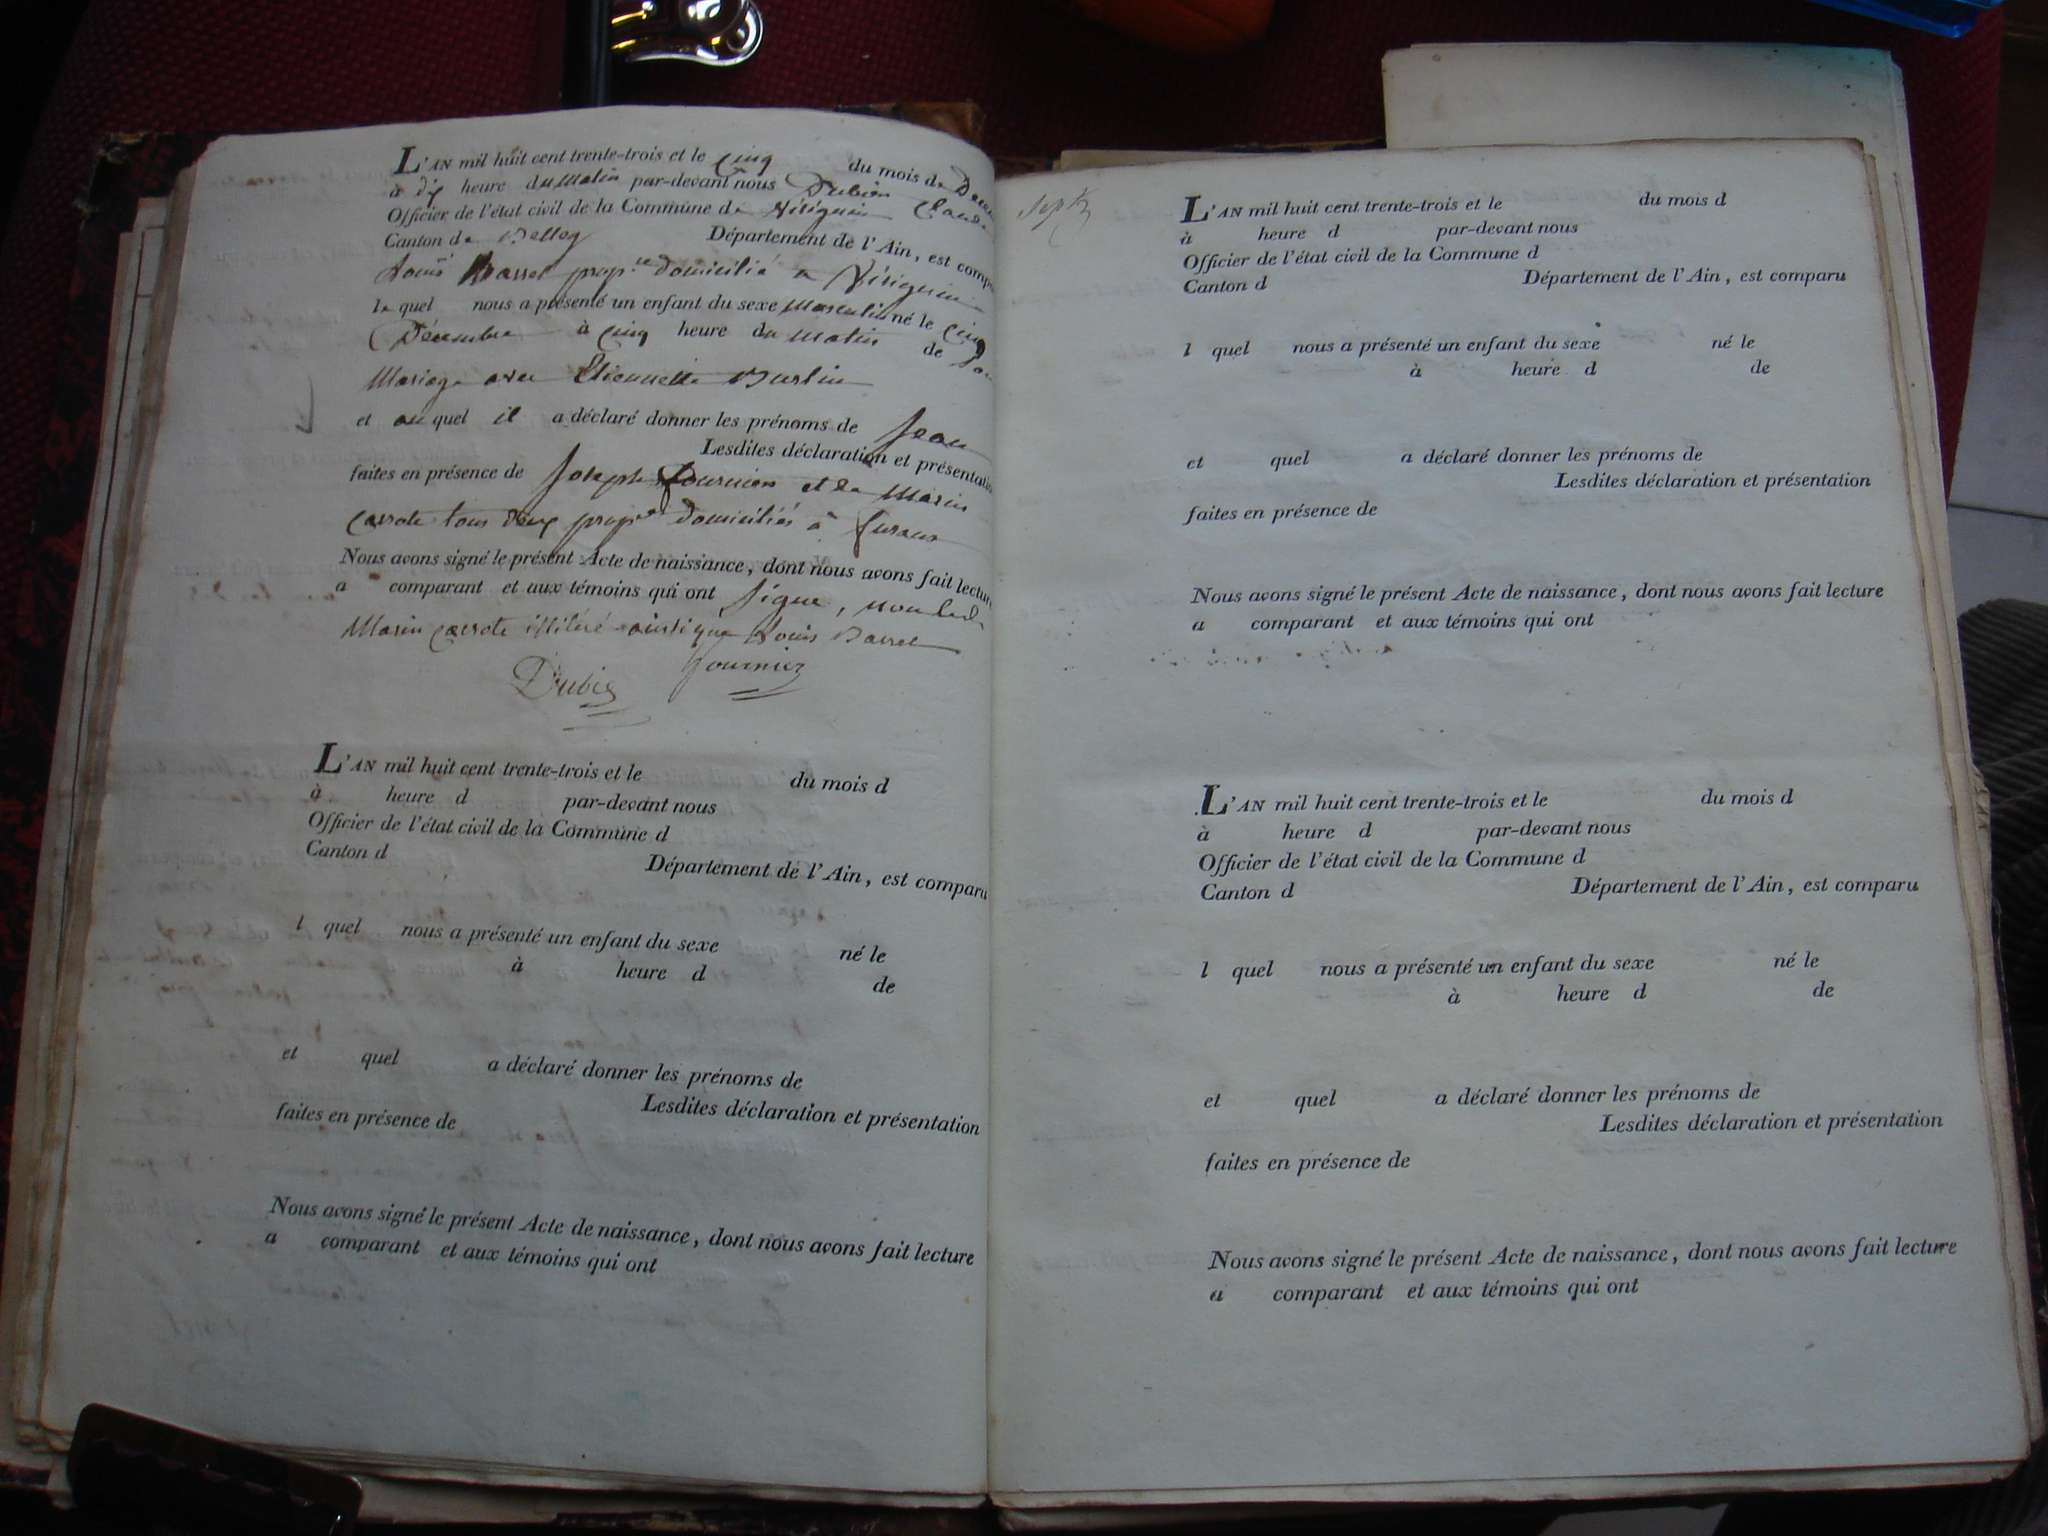 L'AN mil huit cent trente-trois et le cinq du mois de
à dix heure du matin par-devant nous Dubien
Officier de l'état civil de la Commune de Virignin
Canton de Belley Département de l'Ain, est
Louis Barret prop.re domicilié à Virignin
le quel nous a présenté un enfant du sexe Masculin né le cinq
Décembre à cinq heure du matin de
Mariage avec Etiennette Burlin
et au quel il a déclaré donner les prénoms de Jean
Lesdites déclaration et présentation
faites en présence de Joseph Fournier et de Marin
tous deux prop.res domiciliés à
Nous avons signé le présent Acte de naissance, dont nous avons fait lecture
a comparant et aux témoins qui ont signé, non
Marin illitéré ainsi que Louis Barret
Dubien Fournier
L'AN mil huit cent trente-trois et le du mois d
à heure d par-devant nous
Officier de l'état civil de la Commune d
Canton d Département de l'Ain, est comparu
l quel nous a présenté un enfant du sexe né le
à heure d de
et quel a déclaré donner les prénoms de
Lesdites déclaration et présentation
faites en présence de
Nous avons signé le présent Acte de naissance, dont nous avons fait lecture
a comparant et aux témoins qui ont
L'AN mil huit cent trente-trois et le du mois d
à heure d par-devant nous
Officier de l'état civil de la Commune d
Canton d Département de l'Ain, est comparu
l quel nous a présenté un enfant du sexe né le
à heure d de
et quel a déclaré donner les prénoms de
Lesdites déclaration et présentation
faites en présence de
Nous avons signé le présent Acte de naissance, dont nous avons fait lecture
a comparant et aux témoins qui ont
L'AN mil huit cent trente-trois et le du mois d
à heure d par-devant nous
Officier de l'état civil de la Commune d
Canton d Département de l'Ain, est comparu
l quel nous a présenté un enfant du sexe né le
à heure d de
et quel a déclaré donner les prénoms de
Lesdites déclaration et présentation
faites en présence de
Nous avons signé le présent Acte de naissance, dont nous avons fait lecture
a comparant et aux témoins qui ont